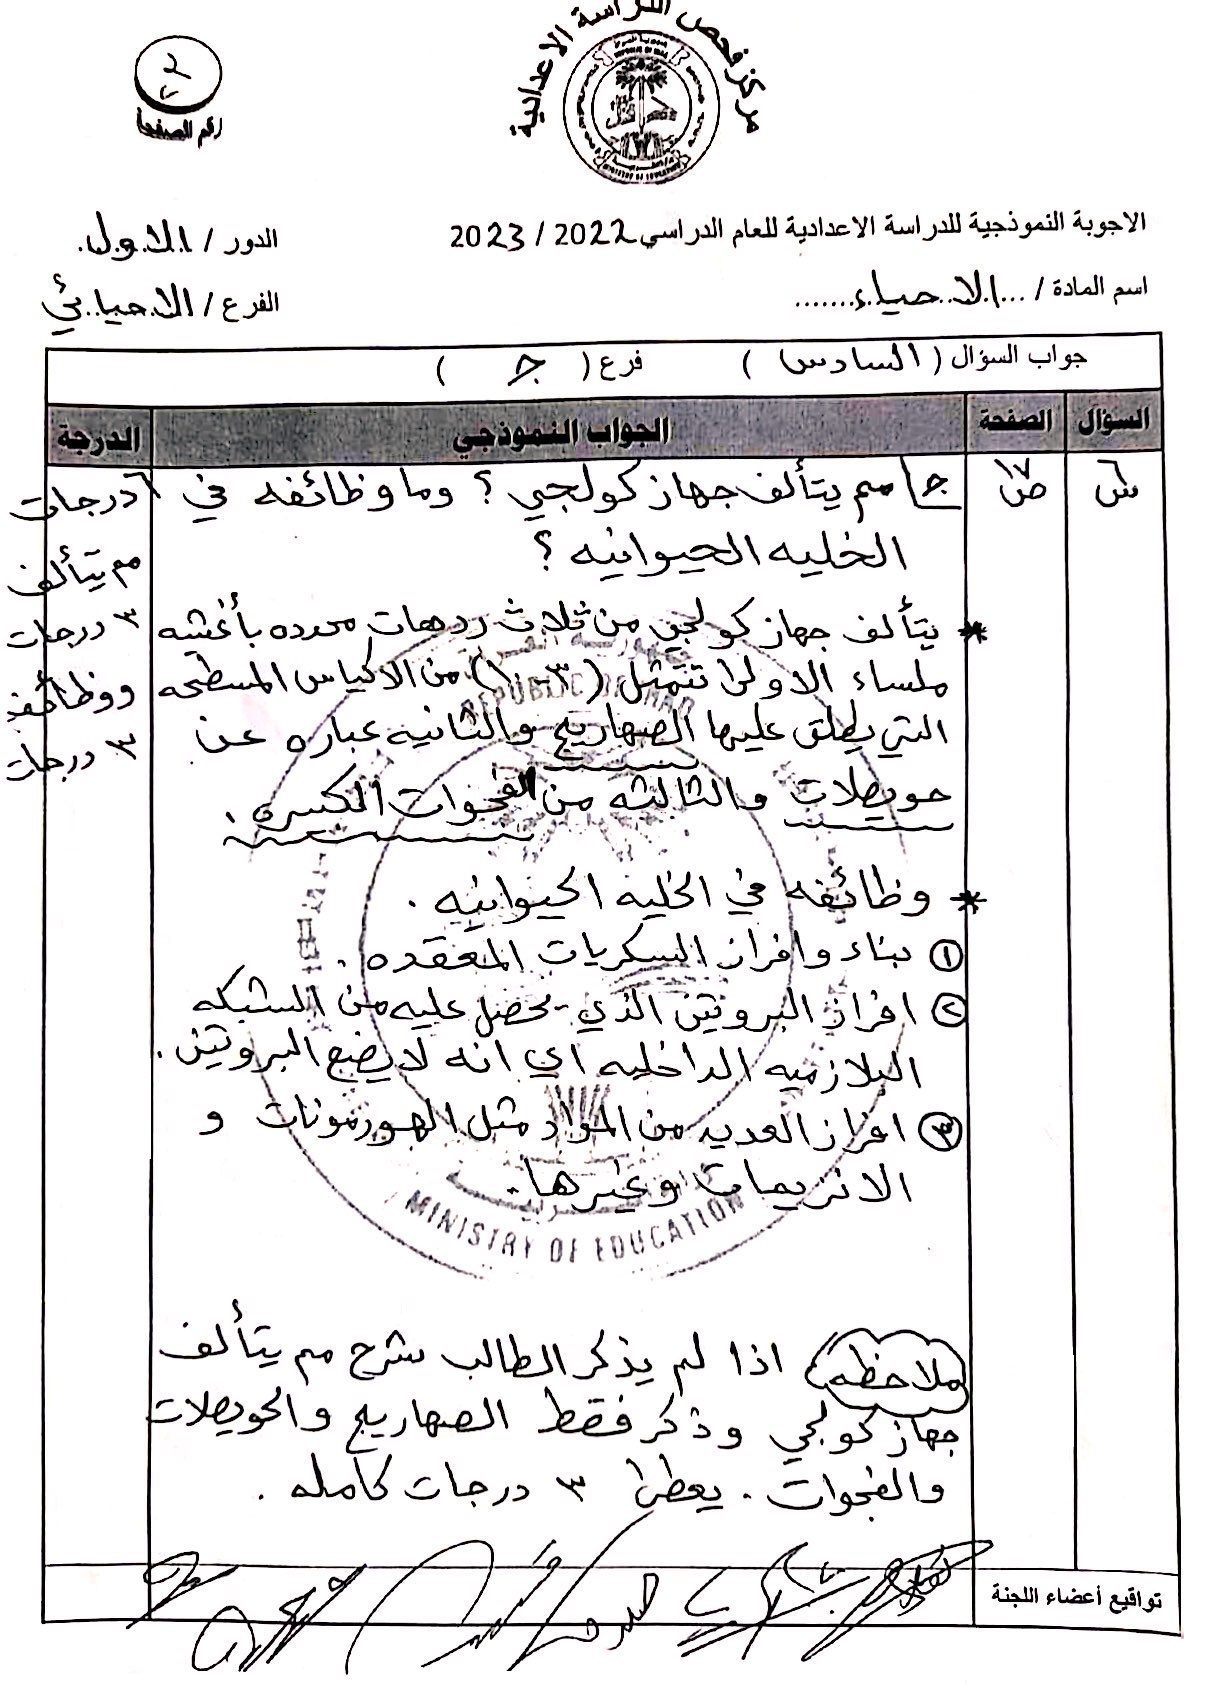 مركز فحص الدراسة الاعدادية
٢
رقم الصفحة
الاجوبة النموذجية للدراسة الاعدادية للعام الدراسي 2022 / 2023
الدور / الاول.
اسم المادة / ...الاحياء.......
الفرع / الاحيائي
جواب السؤال ( السادس ) فرع ( ج )
السؤال الصفحة الجواب النموذجي الدرجة
س٦ ص١٧ ج/ مم يتألف جهاز كولجي ؟ وما وظائفه في ٦ درجات
الخليه الحيوانيه ؟ مم يتألف
* يتألف جهاز كولجي من ثلاث ردهات محدده بأغشيه ٣ درجات
ملساء الاولى تتمثل (٣-١٠) من الاكياس المسطحه ووظائفه
التي يطلق عليها الصهاريج والثانيه عباره عن ٣ درجات
حويصلات والثالثه من الفجوات الكبيره .
* وظائفه في الخليه الحيوانيه .
١ بناء وافراز السكريات المعقده .
٢ افراز البروتين الذي يحصل عليه من الشبكه
البلازميه الداخليه اي انه لا يصنع البروتين .
٣ افراز العديد من المواد مثل الهورمونات و
الانزيمات وغيرها .
REPUBLIC OF IRAQ
MINISTRY OF EDUCATION
ملاحظه/ اذا لم يذكر الطالب شرح مم يتألف
جهاز كولجي وذكر فقط الصهاريج والحويصلات
والفجوات . يعطى ٣ درجات كامله .
تواقيع أعضاء اللجنة